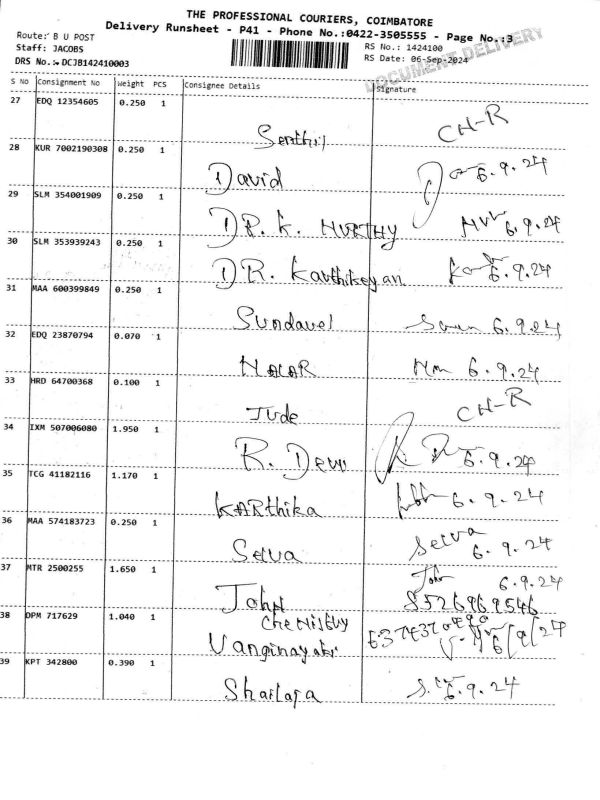 THE PROFESSIONAL COURIERS, COIMBATORE
Delivery Runsheet - P41 - Phone No.:0422-3505555 - Page No.:3
Route: B U POST
RS No.: 1424100
Staff: JACOBS
RS Date: 06-Sep-2024
DRS No.:-DCJB142410003
DOCUMENT DELIVERY
S No Consignment No Weight PCS Consignee Details Signature
27 EDQ 12354605 0.250 1
Senthil CH-R
28 KUR 7002190308 0.250 1
David 6.9.24
29 SLM 354001909 0.250 1
DR. K. MURTHY 6.9.24
30 SLM 353939243 0.250 1
DR. Karthikeyan 6.9.24
31 MAA 600399849 0.250 1
Sundavel 6.9.24
32 EDQ 23870794 0.070 1
6.9.24
33 HRD 64700368 0.100 1
Jude CH-R
34 IXM 507006080 1.950 1
R. 6.9.24
35 TCG 41182116 1.170 1
KARthika 6.9.24
36 MAA 574183723 0.250 1
Selva Selva 6.9.24
37 MTR 2500255 1.650 1
John John 6.9.24
8526969546
38 DPM 717629 1.040 1
Chemistry
6/9/24
39 KPT 342800 0.390 1
Shailaja 6.9.24